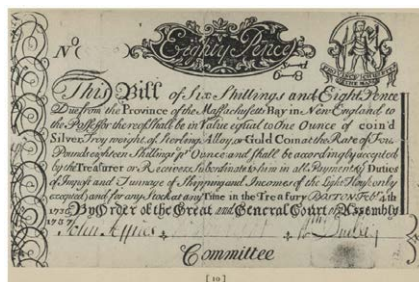 No
Eighty Pence
6s — 8d
This Bill of Six Shillings and Eight Pence
Due from the Province of the Massachusetts Bay in New England to
the Possessor thereof Shall be in Value equal to One Ounce of coin'd
Silver, Troy weight, of Sterling Alloy, or Gold Coin at the Rate of Four
Pounds eighteen Shillings Ounce and shall be accordingly accepted
by the Treasurer or Receivers Subordinate to him in all Payments Duties
of Impost and Tunnage of Shipping and Incomes of the Light House only
excepted) and for any Stock at any Time in the Treasury BOSTON Feb. 4th
1736
1737 By Order of the Great and General Court or Assembly
John
Dudley
Committee
[ 10 ]